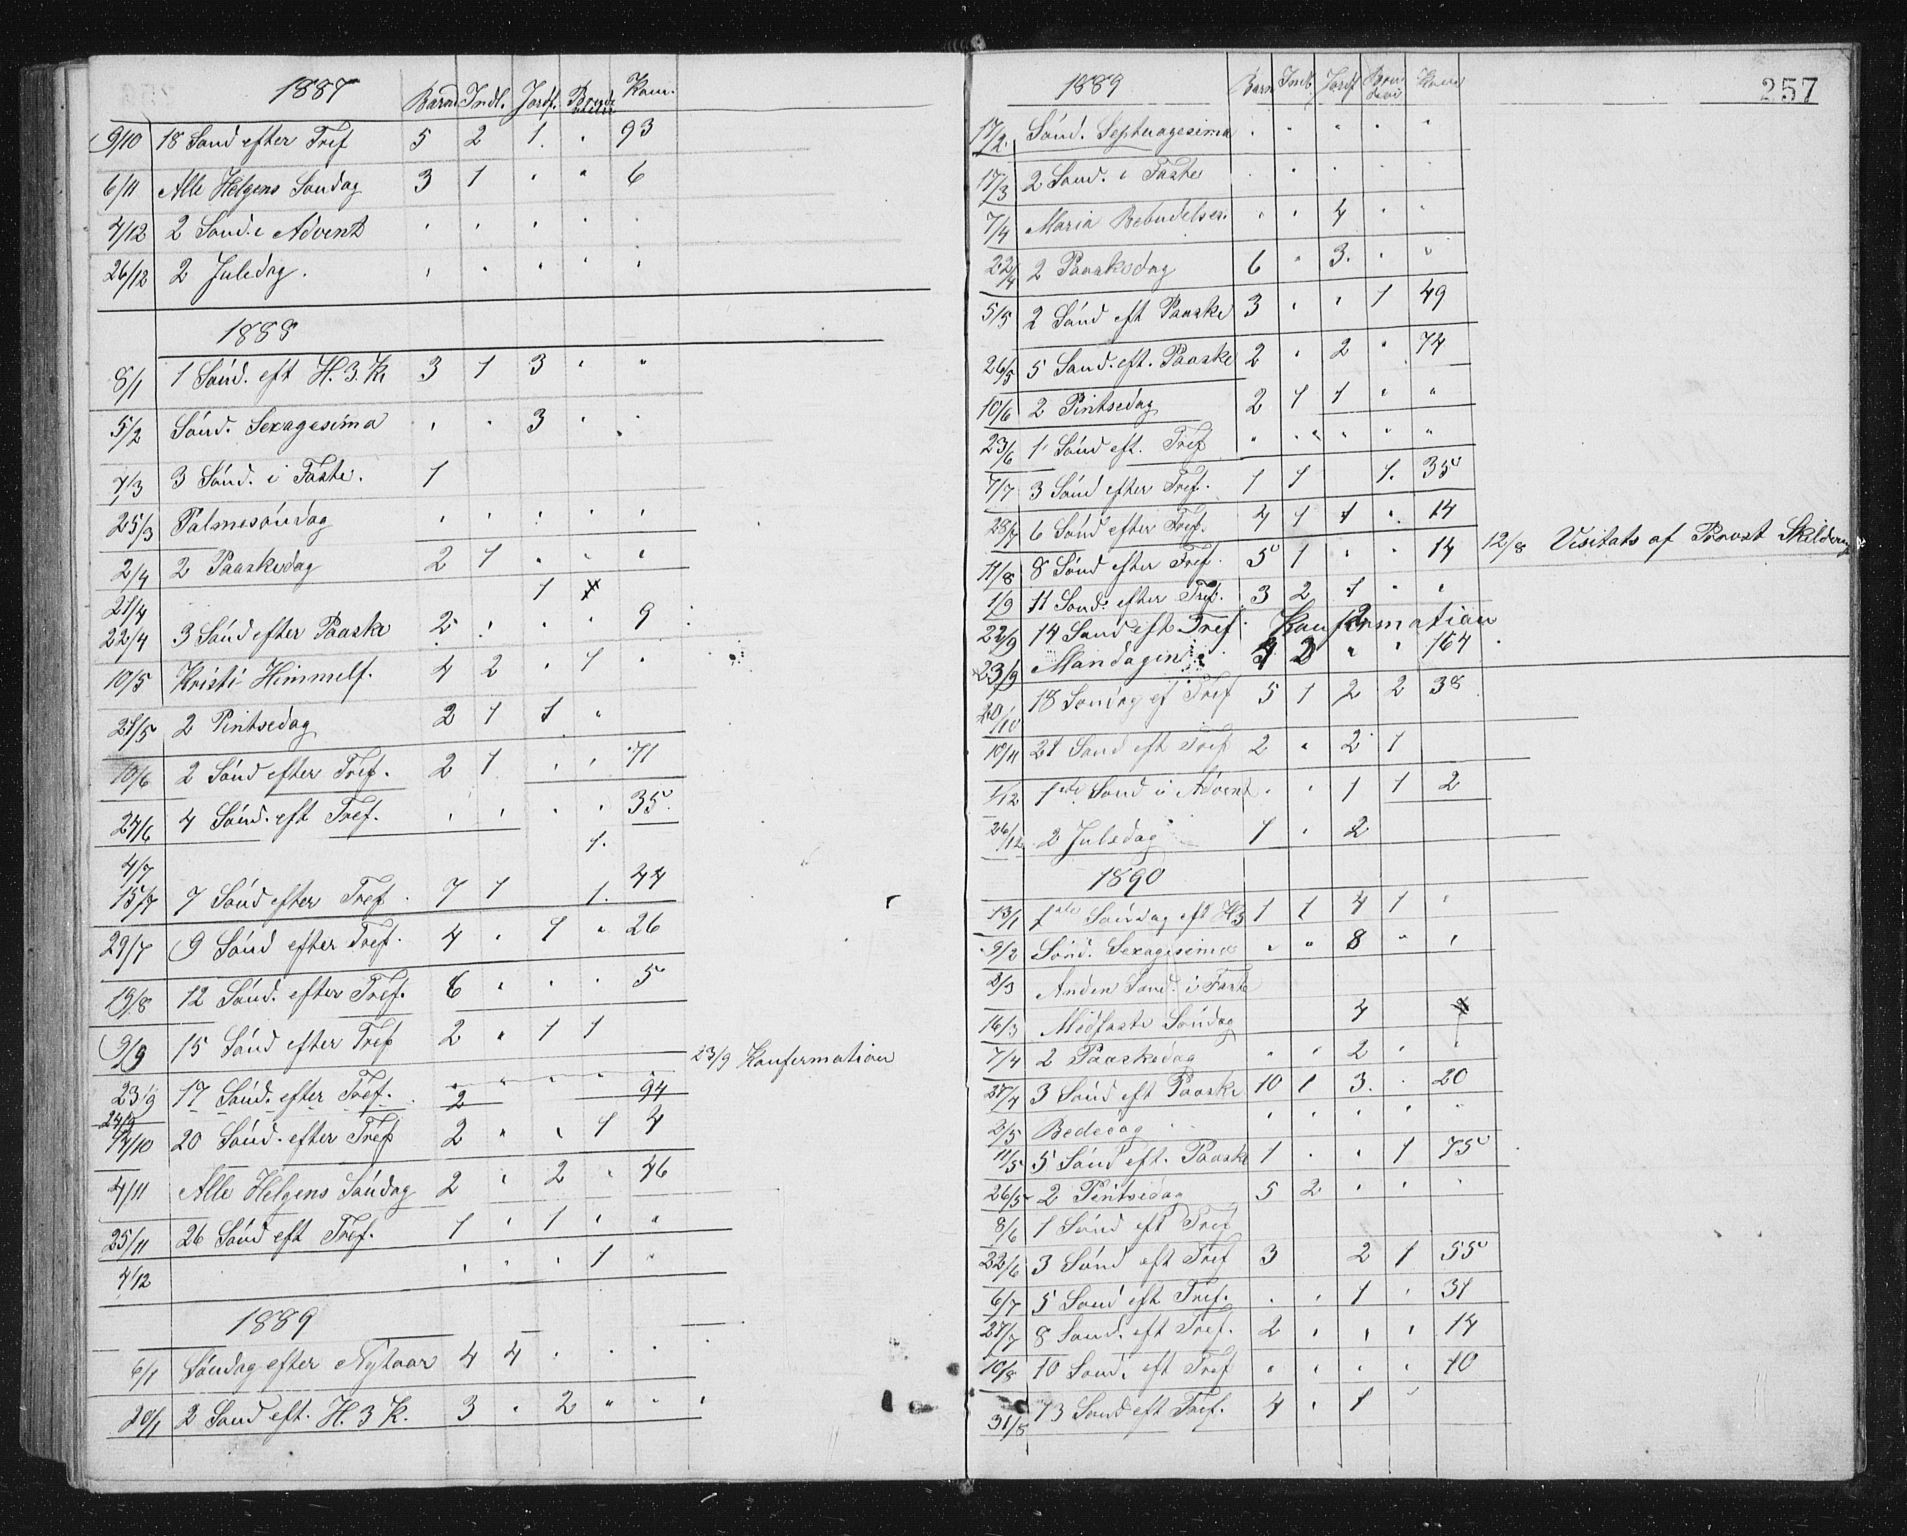 1887 Barn Indl. Jordf. Kom.
9/10 18 Sønd efter Tref 5 2 1. " 93
6/11 Alle Helgens Søndag 3 1 " " 6
4/12 2 Sønd. i Advent " " " " "
26/12 2 Juledag. " " " " "
1888
8/1 1 Sønd. eft H. 3. K. 3 1 3 " "
5/2 Sønd. Sexagesima " " 3 " "
4/3 3 Sønd. i Faste. 1
25/3 Palmesøndag " " " " "
2/4 2 Paaskedag 2 1 " " "
21/4 1
22/4 3 Sønd efter Paaske 2 " " " 9
10/5 Kristi Himmelf. 4 2 " 1 "
21/5 2 Pintsedag 2 1 1 "
10/6 2 Sønd efter Tref. 2 1 " " 71
24/6 4 Sønd. eft Tref. " " " " 35.
4/7 1.
15/7 7 Sønd efter Tref. 7 1 1. 44
29/7 9 Sønd efter Tref. 4 " 1 " 26
19/8 12 Sønd. efter Tref. 6 " " " 5
9/9 15 Sønd efter Tref 2 " 1 1
23/9 Konfermation
23/9 17 Sønd. efter Tref. " " " " "
24/9 2 94
14/10 20 Sønd. efter Tref 2 " " 1 4
4/11 Alle Helgens Søndag 2 " 2 " 46
25/11 26 Sønd eft Tref. 1 " 1 " "
4/12 " " " 1 "
1889
6/1 Søndag efter Nytaar 4 4 " " "
20/1 2 Sønd eft. H. 3 K. 3 " 2 " "
257
1889 Barn Indl. Jordf
17/2. Sønd. Septuagesima " " " " "
17/3 2 Sønd. i Faste " " " "
7/4 Maria Bebudelses. " " 4 " "
22/4 2 Paaskedag 6 " 3. " "
5/5 2 Sønd eft Paaske 3 " " 1 49
26/5 5 Sønd. eft. Paaske 2 " 2 " 74
10/6 2 Pintsedag 2 1 1 " "
23/6 1 Sønd eft. Tref " " " " "
7/7 3 Sønd efter Tref. 1 1 1. 35
28/7 6 Sønd efter Tref. 4 1 1 " 14
11/8 8 Sønd efter Tref. 5 1 " " 14 12/8 Visitats af Provst
1/9 11 Sønd. efter Tref. 3 2 1 " "
22/9 14 Sønd eft Tref. Konfermation
23/9 Mandagen 2 " " 164
20/10 18 Søndag ef Tref 5 1 2 2 38
10/11 21 Sønd eft Tref 2 " 2 1
1/12 1ste Sønd i Advent " " 1 1 2
26/12 2 Juledag 1 " 2
1890
13/1 1ste Søndag eft H3 1 1 4 1 "
9/2 Sønd. Sexagesima " " 8 " "
2/3 Anden Sønd. i Faste
16/3 Midfaste Søndag 4
7/4 2 Paaskedag " " 2 " "
27/4 3 Sønd eft Paaske 10 1 3. " 20
2/5 Bededag " " " " "
11/5 5 Sønd eft. Paaske 1 " " 1 75
26/5 2 Pintsedag 5 2 " " "
8/6 1 Sønd eft Tref
22/6 3 Sønd eft Tref 3 2 1 55
6/7 5 Sønd eft Tref. " " 1 " 31
27/7 8 Sønd. eft Tref. 2 " " " 14
10/8 10 Sønd. eft Tref " " " " 10
31/8 13 Sønd eft Tref. 4 " 1 "